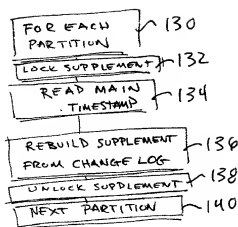 FOR EACH
PARTITION
130
LOCK SUPPLEMENT
132
READ MAIN
TIMESTAMP
134
REBUILD SUPPLEMENT
FROM CHANGE LOG
136
UNLOCK SUPPLEMENT
138
NEXT PARTITION
140